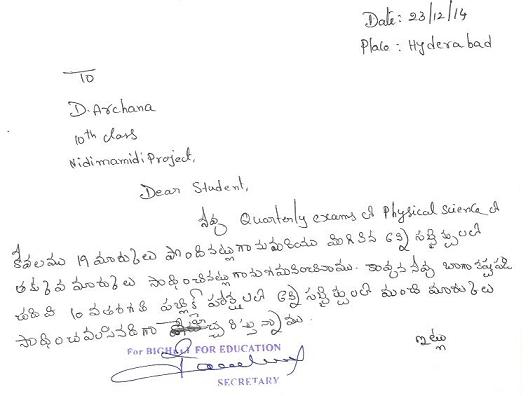 Date: 23/12/14
Place: Hyderabad
To
D. Archana
10th class
Nidimamidi Project,
Dear Student,
నీవు Quarterly exams లో Physical science లో
కేవలము 19 మార్కులు పొందినట్లుగాను మరియు మిగిలిన అన్ని సబ్జెక్టులలో
తక్కువ మార్కులు సాధించినట్లుగాను గమనించినాము. కావున నీవు బాగా కష్టపడి
చదివి 10 వతరగతి పబ్లిక్ పరీక్షలలో అన్ని సబ్జెక్టులలో మంచి మార్కులు
సాధించవలసినదిగా హెచ్చరిస్తున్నాము.
ఇట్లు
For BIGHELP FOR EDUCATION
SECRETARY